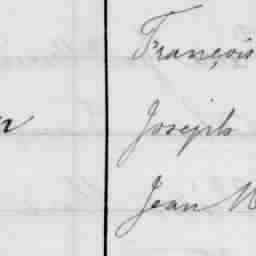 François
Joseph
Jean